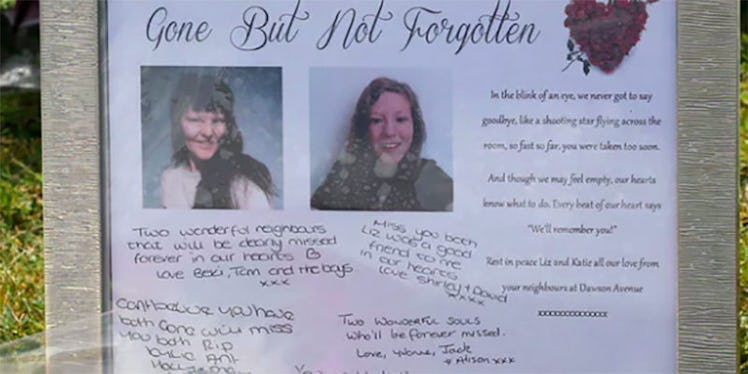 Gone But Not Forgotten
In the blink of an eye, we never got to say
goodbye, like a shooting star flying across the
room, so fast so far, you were taken too soon.
And though we may feel empty, our hearts
know what to do. Every beat of our heart says
"We'll remember you!"
Rest in peace Liz and Katie all our love from
your neighbours at Dawson Avenue
xxxxxxxxxxxxxx
Two wonderful neighbours
that will be dearly missed
forever in our hearts
Love Beki, Tom and the boys
xxx
Miss you both
Liz was a good
friend to me
in our hearts
Love Shirley + David
xxxx
Cant believe you have
both Gone will miss
you both RIP
Two wonderful souls
who'll be forever missed.
Love, Yvonne, Jack
& Alison xxx